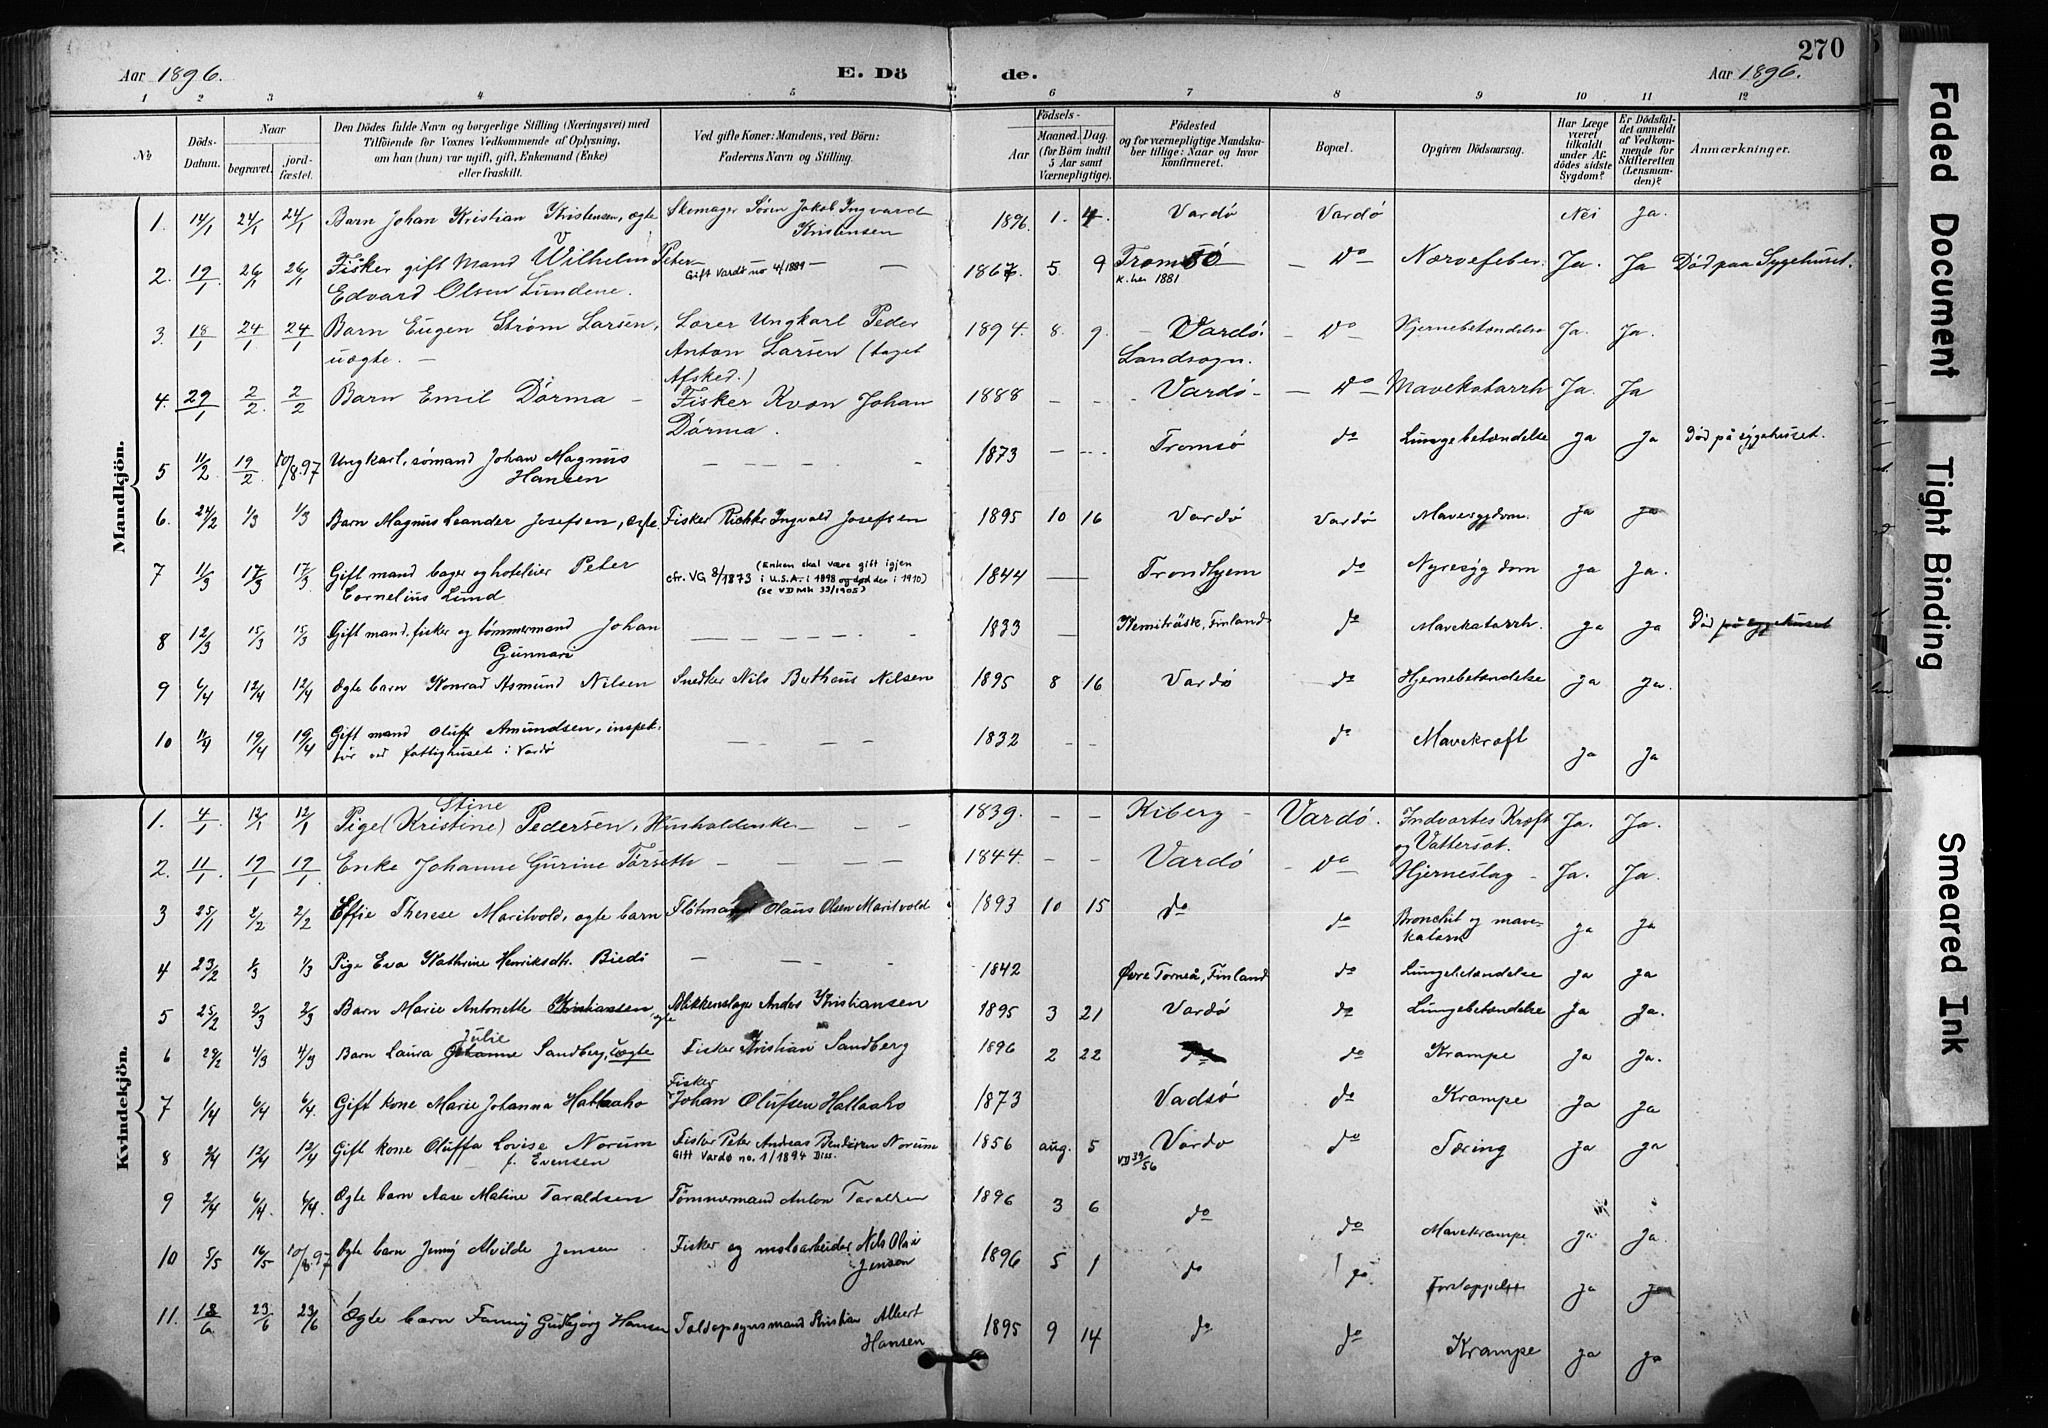 270
Aar 1896.
E. Dö
de.
Aar 1896.
1 2 3 4 5 6 7 8 9 10 11 12
No.
Döds-Datum.
Naar
begravet.
jord-fæstet.
Den Dödes fulde Navn og borgerlige Stilling (Næringsvei) med
Tilföiende for Voxnes Vedkommende af Oplysning,
om han (hun) var ugift, gift, Enkemand (Enke)
eller fraskilt.
Ved gifte Koner: Mandens, ved Börn:
Faderens Navn og Stilling.
Födsels-
Aar
Maaned.
Dag.
(for Börn indtil
5 Aar samt
Værnepligtige).
Födested
og for værnepligtige Mandska-
ber tillige: Naar og hvor
konfirmeret.
Bopæl.
Opgiven Dödsaarsag.
Har Læge
været
tilkaldt
under Af-
dödes sidste
Sygdom?
Er Dödsfal-
det anmeldt
af Vedkom-
mende for
Skifteretten
(Lensman-
den)?
Anmærkninger.
Mandkjön.
1. 14/1 24/1 24/1 Barn Johan Kristian Kristensen, ægte Skomager Sören Jakob Ingvard 1896 1. 4. Vardö Vardö Nei Ja.
Kristensen
2. 19/1 26/1 26/1 Fisker gift Mand Wilhelm Peter Gift Vardö no 4/1889 1867 5. 9 Tromsö Do Nervefeber. Ja. Ja Död paa Sygehuset.
Edvard Olsen Lundene. K. her 1881
3. 18/1 24/1 24/1 Barn Eugen Strøm Larsen, Lærer Ungkarl Peder 1894. 8. 9. Vardö Do Hjernebetændelse Ja. Ja.
uægte. Anton Larsen (taget Landsogn.
Afsked.)
4. 29/1 2/2 2/2 Barn Emil Dörma Fisker Kvæn Johan 1888 Vardö Do Mavekatarrh Ja. Ja
Dörma.
5 11/2 19/2 10/8.97 Ungkarl, sømand Johan Magnus 1873 Tromsö do Lungebetændelse Ja Ja Död på sygehuset.
Hansen
6. 24/2 1/3 1/3 Barn Magnus Leander Josefsen, ægte Fisker Ingvald Josefsen 1895 10 16 Vardö Vardö Mavesygdom. Ja Ja
7 11/3 17/3 17/3 Gift mand bager og hoteleier Peter cfr. VG 8/1873 (Enken skal være gift igjen 1844 Trondhjem do Nyresygdom Ja Ja.
Cornelius Lund i U.S.A. i 1898 og død der i 1910)
(se VD Mk 33/1905)
8 12/3 15/3 15/3 Gift mand, fisker og tømmermand Johan 1833 Kemiträsk, Finland do Mavekatarrh. Ja Ja Död på sygehuset
Gunnari
9 6/4 12/4 12/4 Ægte barn Konrad Asmund Nilsen Snedker Nils Berthæus Nilsen 1895 8 16 Vardö do Hjernebetændelse Ja Ja.
10 11/4 19/4 19/4 Gift mand Oluff Amundsen, inspek- 1832 do Mavekræft Ja Ja
tør ved fattighuset i Vardö
Kvindekjön.
Stine
1. 4/1 12/1 12/1 Pige (Kristine) Pedersen, Husholderske 1839. Kiberg Vardö. Indvortes Kræft Ja. Ja.
og Vattersot.
2. 11/1 19/1 19/1 Enke Johanne Gurine Tørseth 1844. Vardö Do Hjerneslag Ja. Ja.
3 25/1 2/2 2/2 Effie Therese Maritvold, ægte barn Flötmand Olaus Olsen Maritvold 1893 10 15 do do Bronchit og mave- Ja Ja
katarrh
4 23/2 1/3 1/3 Pige Eva Kathrine Henriksdtr. Biedi 1842 Øvre Torneå, Finland do Lungebetændelse Ja Ja
5 25/2 2/3 2/3 Barn Marie Antonette Kristiansen, ægte Blikkenslager Anders Kristiansen 1895 3 21 Vardö do Lungebetændelse Ja Ja.
Julie
6 29/2 4/3 4/3 Barn Laura Johanne Sandberg, uægte Fisker Kristian Sandberg 1896 2 22 do do Krampe Ja Ja.
Fisker
7 1/4 6/4 6/4. Gift kone Marie Johanna Hattaaho Johan Olufsen Hattaaho 1873 Vadsö do Krampe Ja Ja
8 2/4 12/4 12/4 Gift kone Oluffa Lovise Norum Fisker Peter Andreas Bendixen Norum 1856 aug. 5 Vardö do Tæring Ja Ja
f. Evensen Gift Vardö no. 1/1894 Diss. VD 39/56
9 2/4 6/4 6/4. Ægte barn Aase Matine Taraldsen Tømmermand Anton Taraldsen 1896 3 6 do do Mavekrampe Ja Ja.
10 5/5 16/5 10/8.97 Ægte barn Jenny Alvilde Jensen Fisker og moloarbeider Nils Olai 1896 5 1 do do Forstoppelse Ja Ja
Jensen
11. 18/6 23/6 23/6 Ægte barn Fanny Gudbjörg Hansen Toldopsynsmand Kristian Albert 1895 9 14 do do Krampe Ja Ja
Hansen
Faded Document
Tight Binding
Smeared Ink